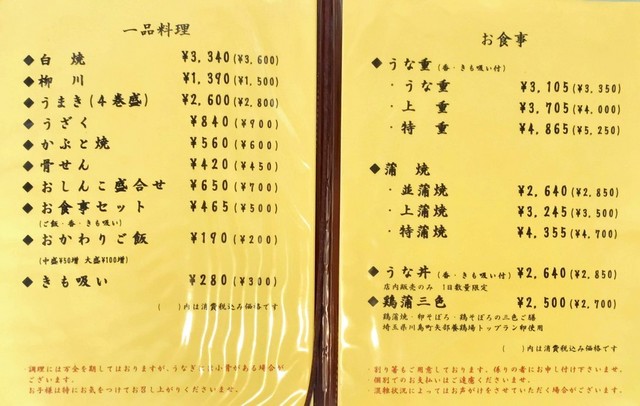 一品料理
◆白　焼　¥3,340(¥3,600)
◆柳　川　¥1,390(¥1,500)
◆うまき(4巻盛)　¥2,600(¥2,800)
◆うざく　¥840(¥900)
◆かぶと焼　¥560(¥600)
◆骨せん　¥420(¥450)
◆おしんこ盛合せ　¥650(¥700)
◆お食事セット　¥465(¥500)
(ご飯・香・きも吸い)
◆おかわりご飯　¥190(¥200)
(中盛¥50増 大盛¥100増)
◆きも吸い　¥280(¥300)
(　)内は消費税込み価格です
・調理には万全を期してはおりますが、うなぎには小骨がある場合がございます。
お子様は特にお気をつけてお召し上がりくださいませ。
お食事
◆うな重(香・きも吸い付)
・うな重　¥3,105(¥3,350)
・上　重　¥3,705(¥4,000)
・特　重　¥4,865(¥5,250)
◆蒲　焼
・並蒲焼　¥2,640(¥2,850)
・上蒲焼　¥3,245(¥3,500)
・特蒲焼　¥4,355(¥4,700)
◆うな丼(香・きも吸い付)　¥2,640(¥2,850)
店内販売のみ　1日数量限定
◆鶏蒲三色　¥2,500(¥2,700)
鶏蒲焼・卵そぼろ・鶏そぼろの三色ご膳
埼玉県川島町矢部養鶏場トップラン卵使用
(　)内は消費税込み価格です
・割り箸もご用意しております。係りの者にお申し付け下さいませ。
・個別でのお支払いはご遠慮くださいませ。
・混雑状況によってはお声がけをさせていただく場合がございます。